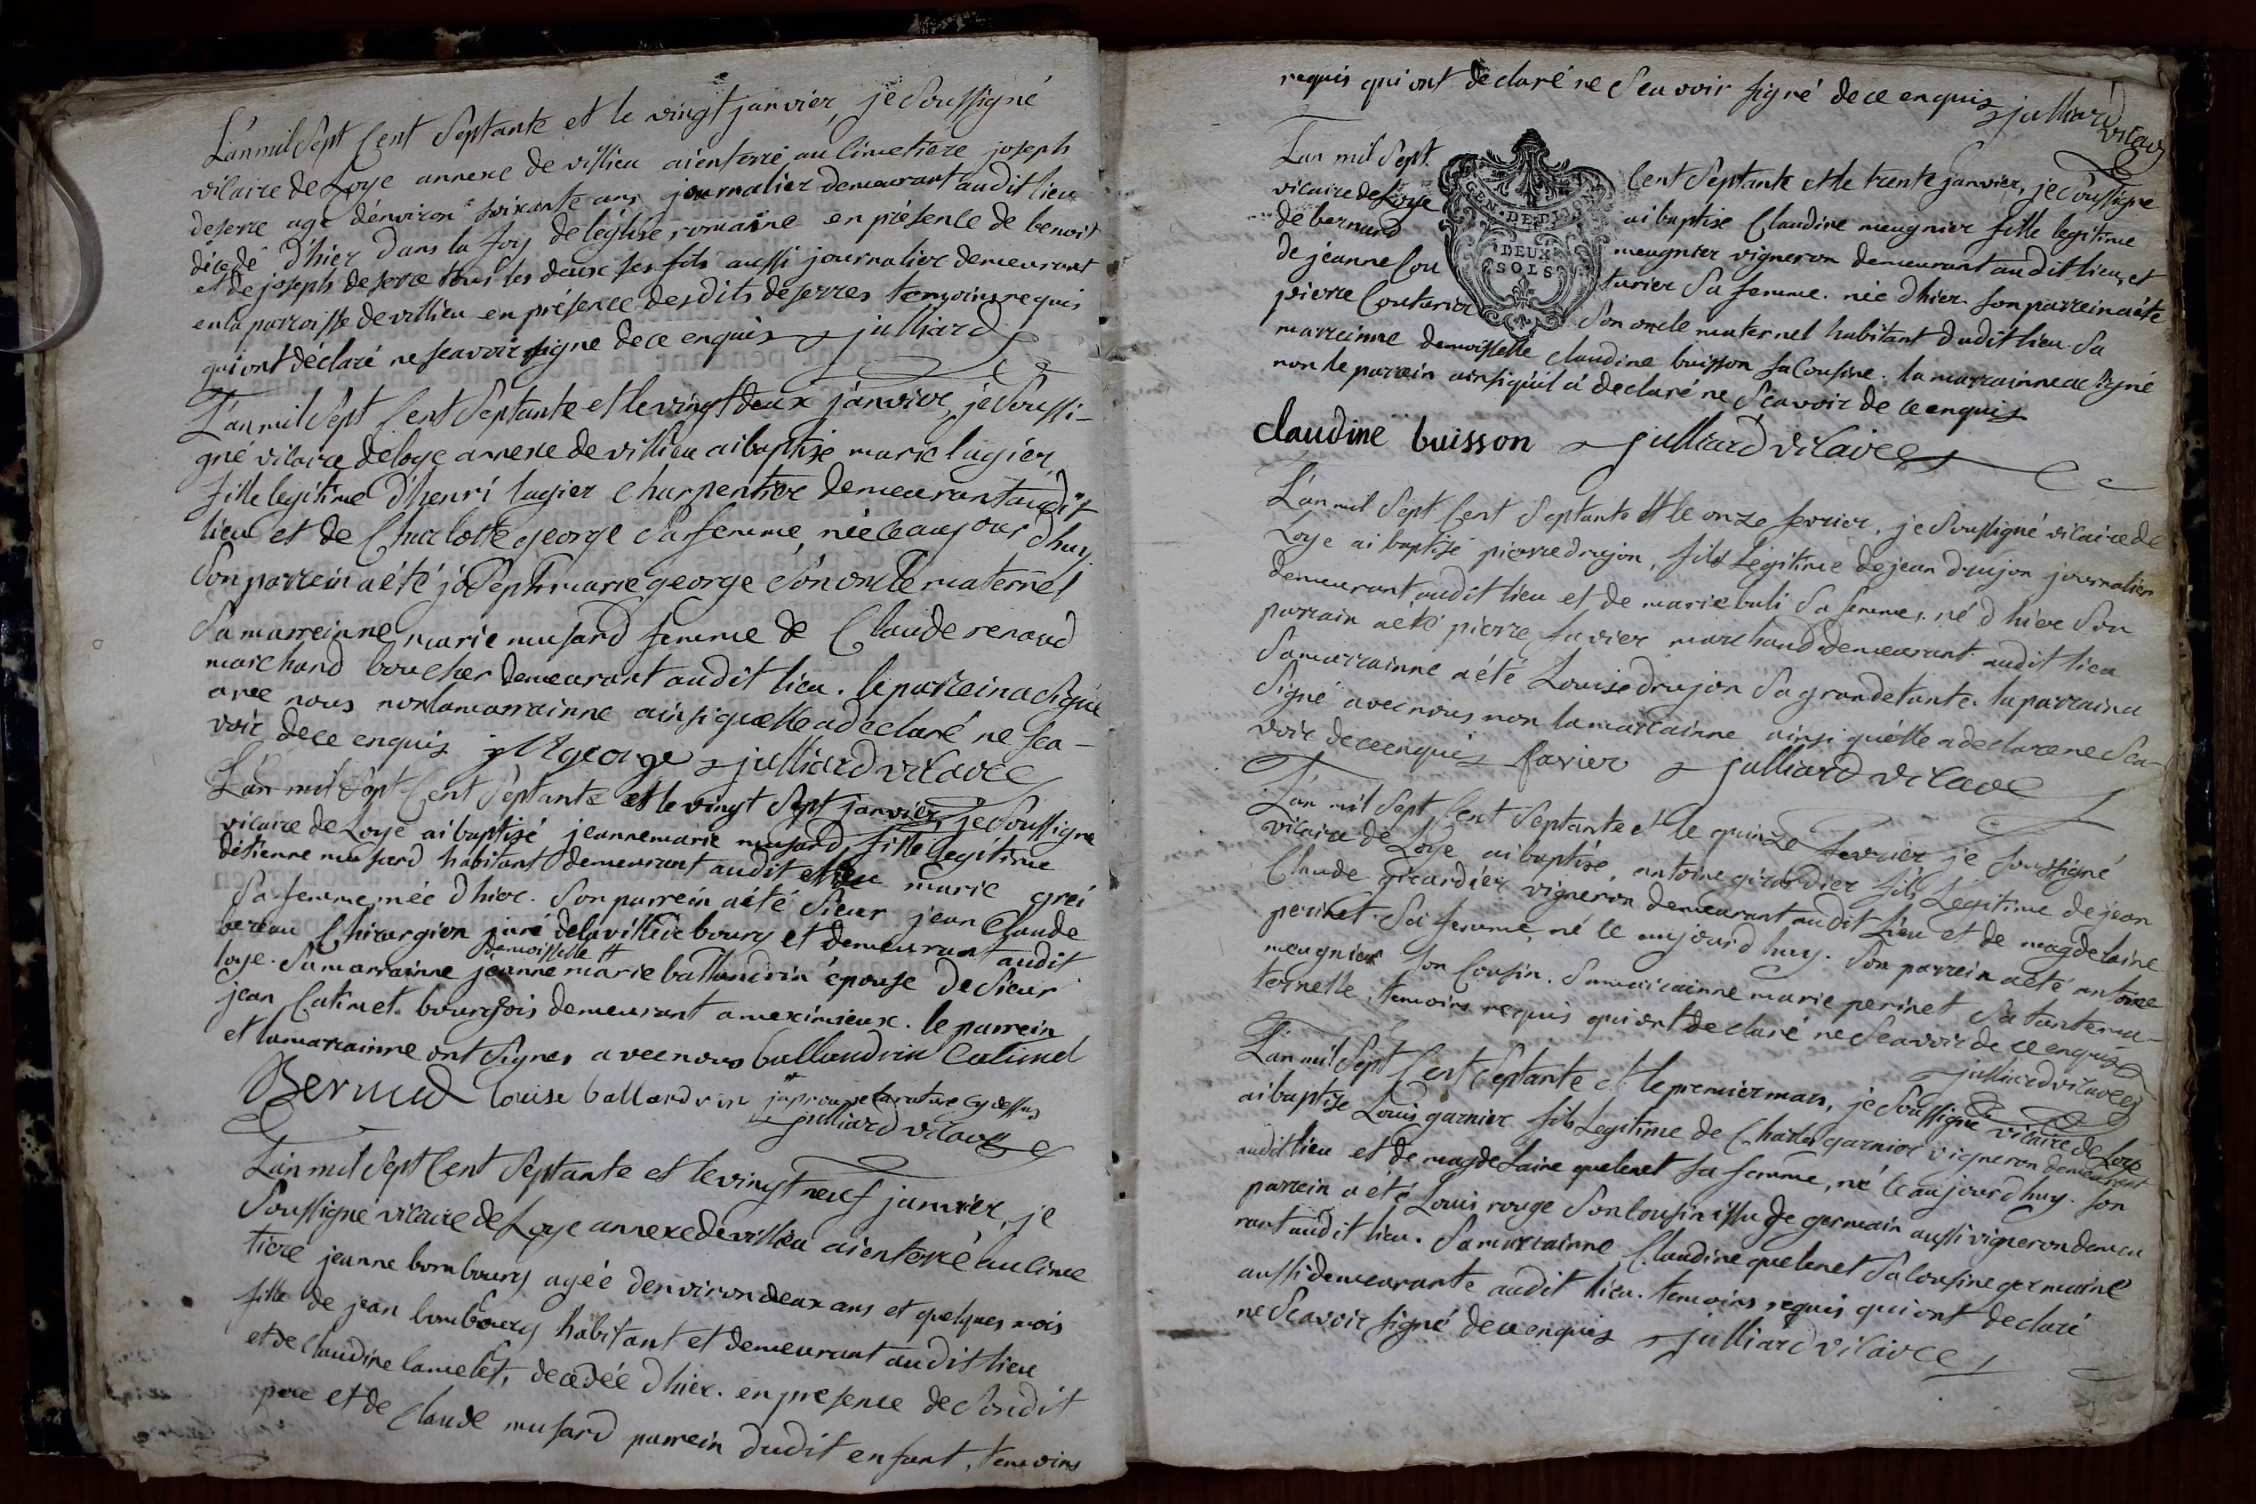 L'an mil Sept Cent Septante et le vingt janvier, je Soussigné
vicaire de Loye annexe de villieu ai enterré au Cimetiere joseph
deserre agé d'environ soixante ans journalier demeurant audit lieu
décedé d'hier dans la foy de l'église romaine en présence de benoit
et de joseph deserre tous les deux ses fils aussi journalier demeurant
en la parroisse de villieu en présence desdits deserres temoins requis
qui ont déclaré ne scavoir signe de ce enquis julliard
L'an mil Sept Cent Septante et le vingt deux janvier, je Soussi-
gné vicaire de loye annexe de villieu ai baptisé marie lugier,
fille legitime d'henri lugier Charpentier demeurant audit
lieu et de Charlotte george Sa femme, née ce aujourd'huy
Son parrein a été joseph marie george Son oncle maternel
Sa marreinne marie musard femme de Claude renaud
marchand boucher demeurant audit lieu. le parrein a signé
avec nous non la marrainne ainsi quelle a declaré ne sca-
voir de ce enquis jM george julliard vicaire
L'an mil Sept Cent Septante et le vingt Sept janvier, je Soussigne
vicaire de Loye ai baptisé jeanne marie musard fille legitime
détienne musard habitant demeurant audit lieu marie grei
Sa femme née d'hier. Son parrein a été Sieur jean Claude
bernau Chirurgien juré de la ville de bourg et demeurant audit
demoisselle #
loye. Sa marrainne jeanne marie ballandrin épouse de Sieur
jean Catimet bourgois demeurant a meximieux. le parrein
et la marrainne ont Signes avec nous ballandrin Catimel
Bernud louise ballandrin japrouve la rature cy dessus
julliard vicaire
L'an mil Sept Cent Septante et le vingt neuf janvier, je
Soussigne vicaire de Loye annexe de villieu ai enterré au Cime
tiere jeanne bombourg agée denviron deux ans et quelques mois
fille de jean bombourg habitant et demeurant audit lieu
et de Claudine lamelet, decedée d'hier. en presence de Sondit
pere et de Claude musard parrein dudit enfant, temoins
requis qui ont declaré ne Scavoir signé de ce enquis julliard
vicaire
L'an mil Sept Cent Septante et le trente janvier, je Soussigne
vicaire de Loye ai baptise Claudine meugnier fille legitime
de bernard meugnier vigneron demeurant audit lieu et
de jeanne Couturier Sa femme. née d'hier. son parrein a été
pierre Couturier Son oncle maternel habitant dudit lieu. Sa
GEN·DE·DIJON
DEUX
SOLS
marreinne demoisselle Claudine buisson sa Cousine. la marrainne a signé
non le parrein ainsi qu'il a declaré ne Scavoir de ce enquis
claudine buisson julliard vicaire
L'an mil Sept Cent Septante et le onze fevrier, je Soussigné vicaire de
Loye ai baptisé pierre drujon, fils Legitime de jean drujon journalier
demeurant audit lieu et de marie buli Sa femme, né d'hier Son
parrain a été pierre favier marchand demeurant audit lieu
Sa marrainne a été Louise drujon Sa grande tante. la parrain a
Signé avec nous non la marrainne ainsi quelle a declaré ne Sca-
voir de ce enquis favier julliard vicaire
L'an mil Sept Cent Septante et le quinze fevrier je soussigné
vicaire de Loye ai baptisé, antoine girardier fils Legitime de jean
Claude girardier vigneron demeurant audit Lieu et de magdelaine
perinet Sa femme, né ce aujourd'huy. Son parrein a été antoine
meugnier Son Cousin. Sa marrainne marie perinet Sa tante ma-
ternelle, temoins requis qui ont declaré ne Scavoir de ce enquis
julliard vicaire
L'an mil Sept Cent Septante et le premier mars, je Soussigné vicaire de Loye
ai baptise Louis garnier fils Legitime de Charles garnier vigneron demeurant
audit lieu et de magdelaine quelenet sa femme, né ce aujourd'huy. Son
parrein a été Louis rouge Son Cousin issu de germain aussi vigneron demeu
rant audit lieu. Sa marrainne Claudine quelenet Sa Cousine germaine
aussi demeurante audit lieu. temoins requis qui ont declaré
ne Scavoir signé de ce enquis julliard vicaire